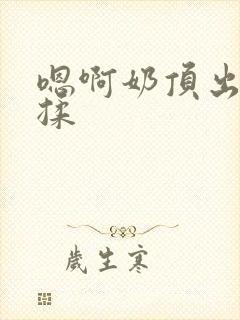 嗯啊奶頂出
揉
歲生寒